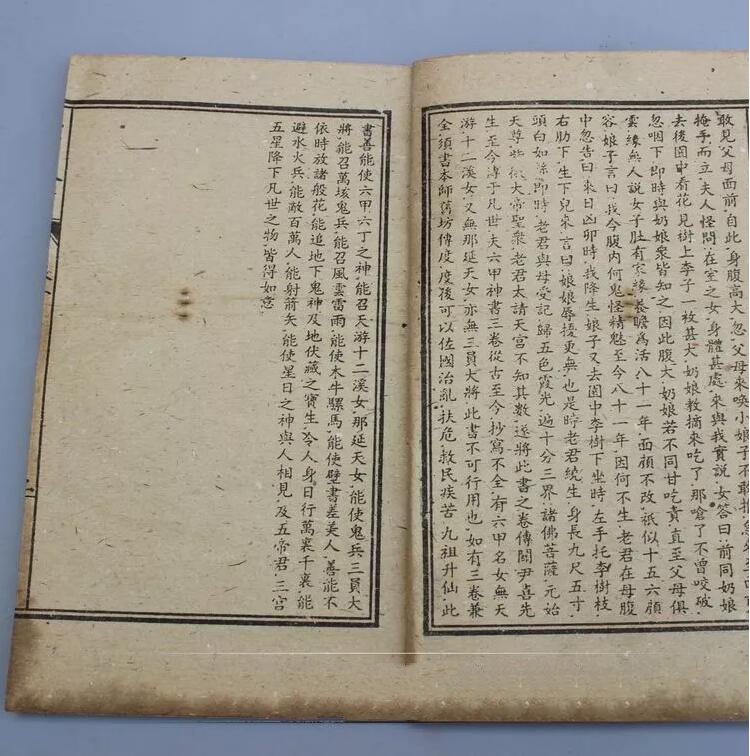 敢見父母面前自此身腹高大忽父母來喚小娘子不敢
掩手而立夫人怪問在室之女身體甚處來與我實說女答曰前同奶娘
去後園中看花見樹上李子一枚甚大奶娘教摘來吃了那嗆了不曾咬破
忽咽下即時與奶娘衆皆知之因此腹大奶娘若不同甘吃責直至父母俱
雲緣無人說女子肚有家緣長瞻為活八十一年面顔不改祇似十五六顔
容娘子言曰我今腹內何鬼怪精魅至今八十一年因何不生老君在母腹
中忽告曰來日凶卯時我降生娘子又去園中李樹下坐時左手托李樹枝
右肋下生下兒來言曰娘娘辱擾更無也是時老君繞生身長九尺五寸
頭白如絲即時老君與母受記歸五色霞光遍十分三界諸佛菩薩元始
天尊紫微大帝聖衆老君太請天宮不知其數遂將此書之卷傳關尹喜先
生至今淳于凡世夫六甲神書三卷從古至今抄寫不全有六甲名女無天
游十二溪女又無那延天女亦無三員大將此書不可行用也如有三卷兼
全須書本師舊坊傳度度後可以佐國治亂扶危救民疾苦九祖升仙此
書善能使六甲六丁之神能召天游十二溪女那延天女能使鬼兵三員大
將能召萬垓鬼兵能召風雲雷雨能使木牛騾馬能使壁書差美人善能不
依時放諸般花能追地下鬼神及地伏藏之寶生令人身日行萬裏千裏能
避水火兵能敵百萬人能射箭矢能使星日之神與人相見及五帝君三宮
五星降下凡世之物皆得如意